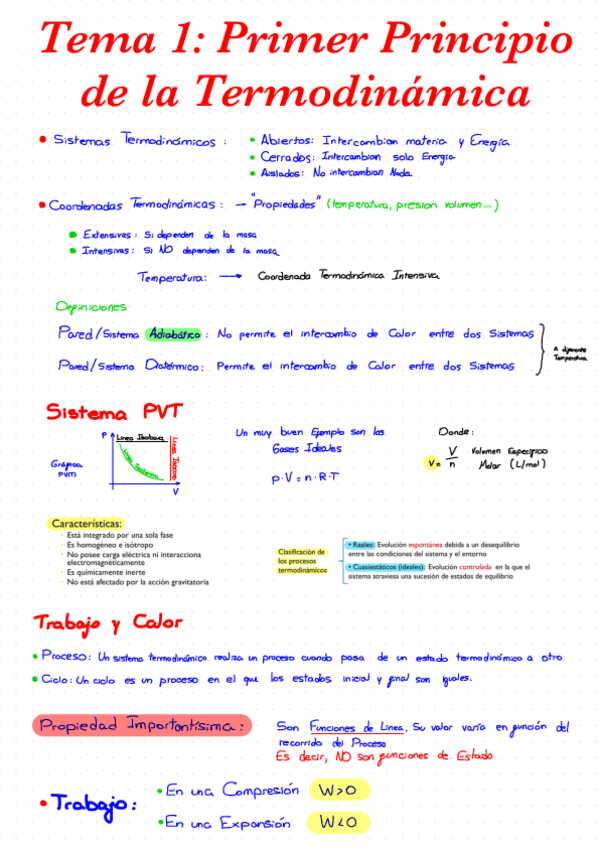 Tema 1: Primer Principio
de la Termodinámica
Sistemas Termodinámicos :
Abiertos: Intercambian materia y Energía.
Cerrados: Intercambian solo Energía
Aislados: No intercambian Nada
Coordenadas Termodinámicas : → "Propiedades" (temperatura, presion volumen...)
Extensivas : Si dependen de la masa
Intensivas : Si NO dependen de la masa
Temperatura: → Coordenada Termodinámica Intensiva
Definiciones
Pared/Sistema Adiabático : No permite el intercambio de Calor entre dos Sistemas
Pared/Sistema Diatérmico: Permite el intercambio de Calor entre dos Sistemas
A diferente
Temperatura
Sistema PVT
P
Linea Isobara
Linea Isoterma
Linea Isocora
V
Gráfica
PVT
Un muy buen Ejemplo son los
Gases Ideales
p·V = n·R·T
Donde:
v = V/n Volumen Específico
Molar (L/mol)
Características:
Está integrado por una sola fase
Es homogéneo e isótropo
No posee carga eléctrica ni interacciona
electromagnéticamente
Es químicamente inerte
No está afectado por la acción gravitatoria
Clasificación de
los procesos
termodinámicos
• Reales: Evolución espontánea debida a un desequilibrio
entre las condiciones del sistema y el entorno
• Cuasiestáticos (ideales): Evolución controlada en la que el
sistema atraviesa una sucesión de estados de equilibrio
Trabajo y Calor
Proceso: Un sistema termodinámico realiza un proceso cuando pasa de un estado termodinámico a otro
Ciclo: Un ciclo es un proceso en el que los estados inicial y final son iguales.
Propiedad Importantísima:
Son Funciones de Linea, Su valor varía en función del
recorrido del Proceso
Es decir, NO son funciones de Estado
Trabajo:
En una Compresión W>0
En una Expansión W<0